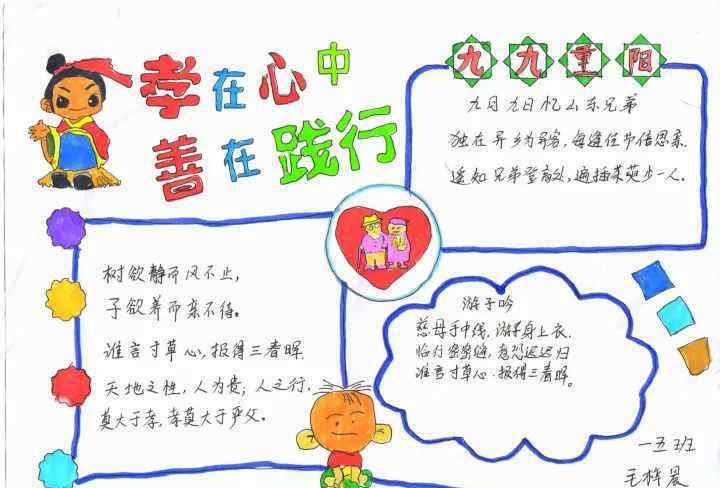 孝在心中
善在践行
九九重阳
九月九日忆山东兄弟
独在异乡为异客,每逢佳节倍思亲.
遥知兄弟登高处,遍插茱萸少一人。
树欲静而风不止,
子欲养而亲不待。
谁言寸草心,报得三春晖.
天地之性,人为贵;人之行,
莫大于孝,孝莫大于严父。
游子吟
慈母手中线,游子身上衣.
临行密密缝,意恐迟迟归
谁言寸草心.报得三春晖。
一五班
毛梓晨